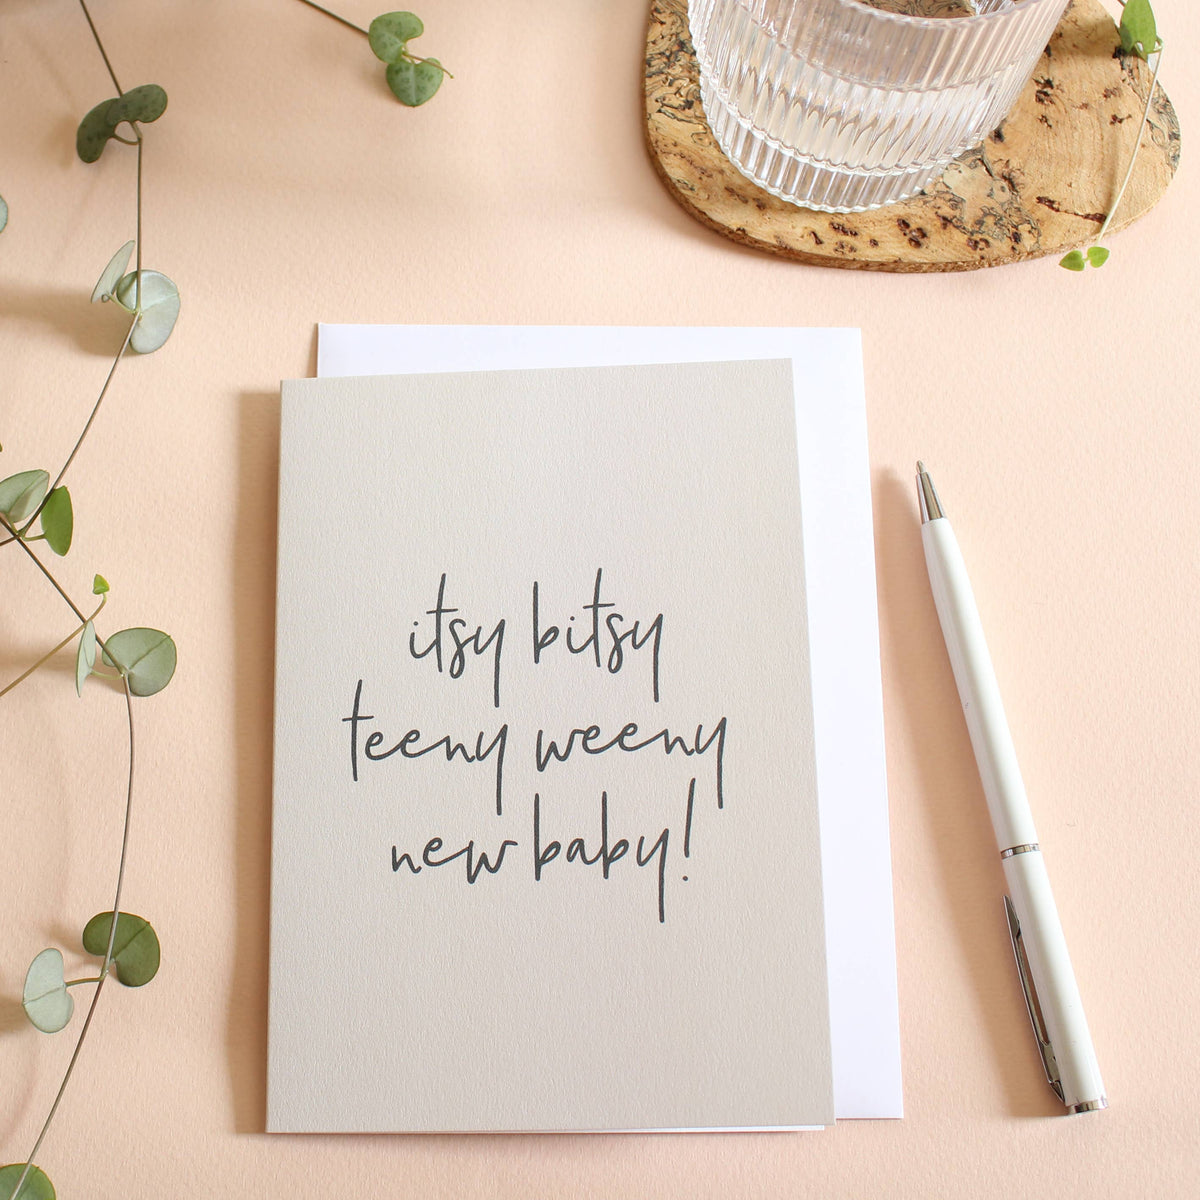 itsy bitsy
teeny weeny
new baby!